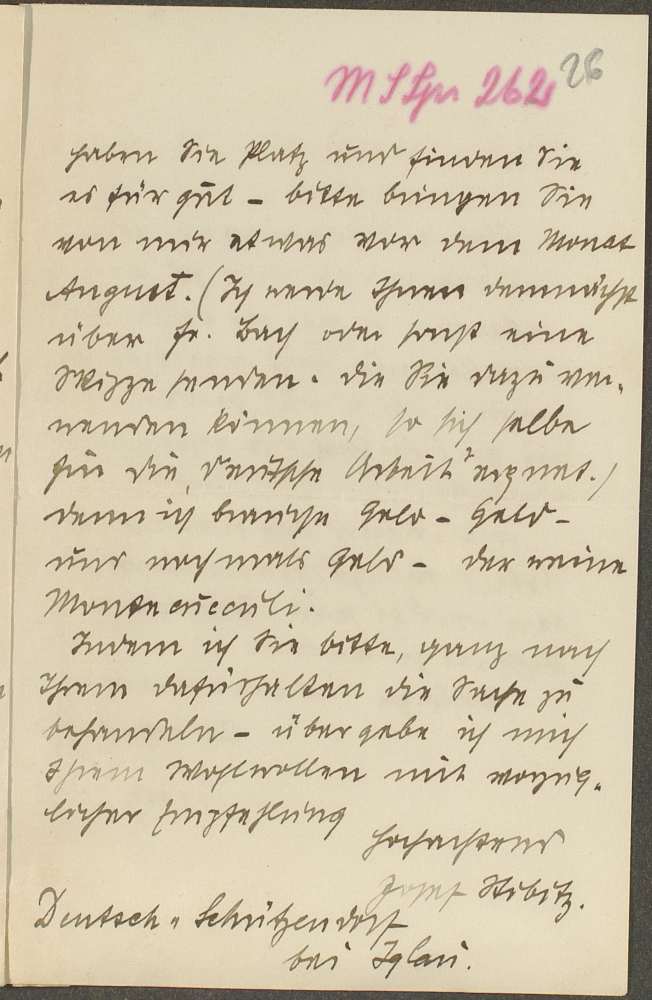 M S Spr 262
26
haben Sie Platz und finden Sie
es für gut – bitte bringen Sie
von mir etwas vor dem Monat
August. (Ich werde Ihnen demnächst
über Fr. Bach oder sonst eine
Skizze senden. die Sie dazu ver-
wenden können, so sich selbe
für die „Deutsche Arbeit" eignet.)
denn ich brauche Geld – Geld –
und nochmals Geld – der reine
Montecucculi.
Indem ich Sie bitte, ganz nach
Ihrem Dafürhalten die Sache zu
behandeln – übergebe ich mich
Ihrem Wohlwollen mit vorzüg-
licher Empfehlung
hochachtend
Josef Stibitz.
Deutsch-Schützendorf
bei Iglau.